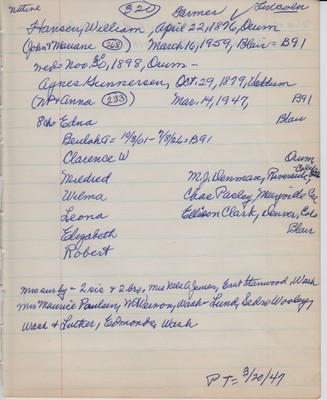 Native 320 Farmer ✓ Lincoln
Hansen, William, April 22, 1876, Orum
(John & Mariane 268) March 16, 1959, Blair = B91
wed = Nov. 30, 1898, Orum -
Agnes Gunnersen, Oct. 29, 1879, Vaccum
(N P & Anna 233) Mar. 14, 1947, B91
8ch = Edna Blair
Beulah A = B91
Clarence W Orum
Mildred M.J. Denman, Riverside, Calif
Wilma Chas Pasley,
Leona Ellison Clark, Denver, Colo
Elizabeth Blair
Robert
Mrs sur by - 2 sis & 2 bro, Mrs A Jensen, East Stanwood, Wash
Mrs Maurice Paulsen, Mt Vernon, Wash - Lund, Sedro Wooley,
Wash & Luther, Edmonds, Wash
P T = 3/20/47